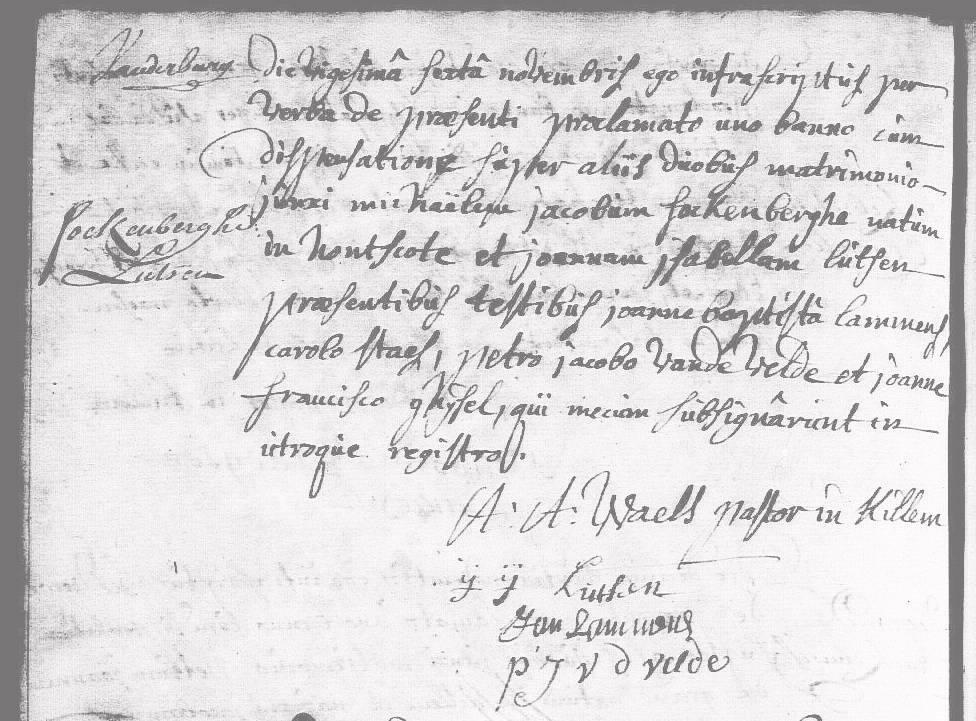 Vanderburg
die vigesimâ sextâ novembris ego infrascriptus per
verba de præsenti proclamato uno banno cum
dispensatione super aliis duobus matrimonio
junxi michaëlem jacobum fockenberghe natum
in hontscote et joannam isabellam lutsen
præsentibus testibus joanne baptistâ lammens
carolo staes, petro jacobo vande velde et joanne
francisco ghysel, qui mecum subsignârunt in
utroque registro.
fockenberghe
&
Lutsen
A: A: Waels pastor in Killem
ij ij Lutsen
Jan Lammens
p J v d velde